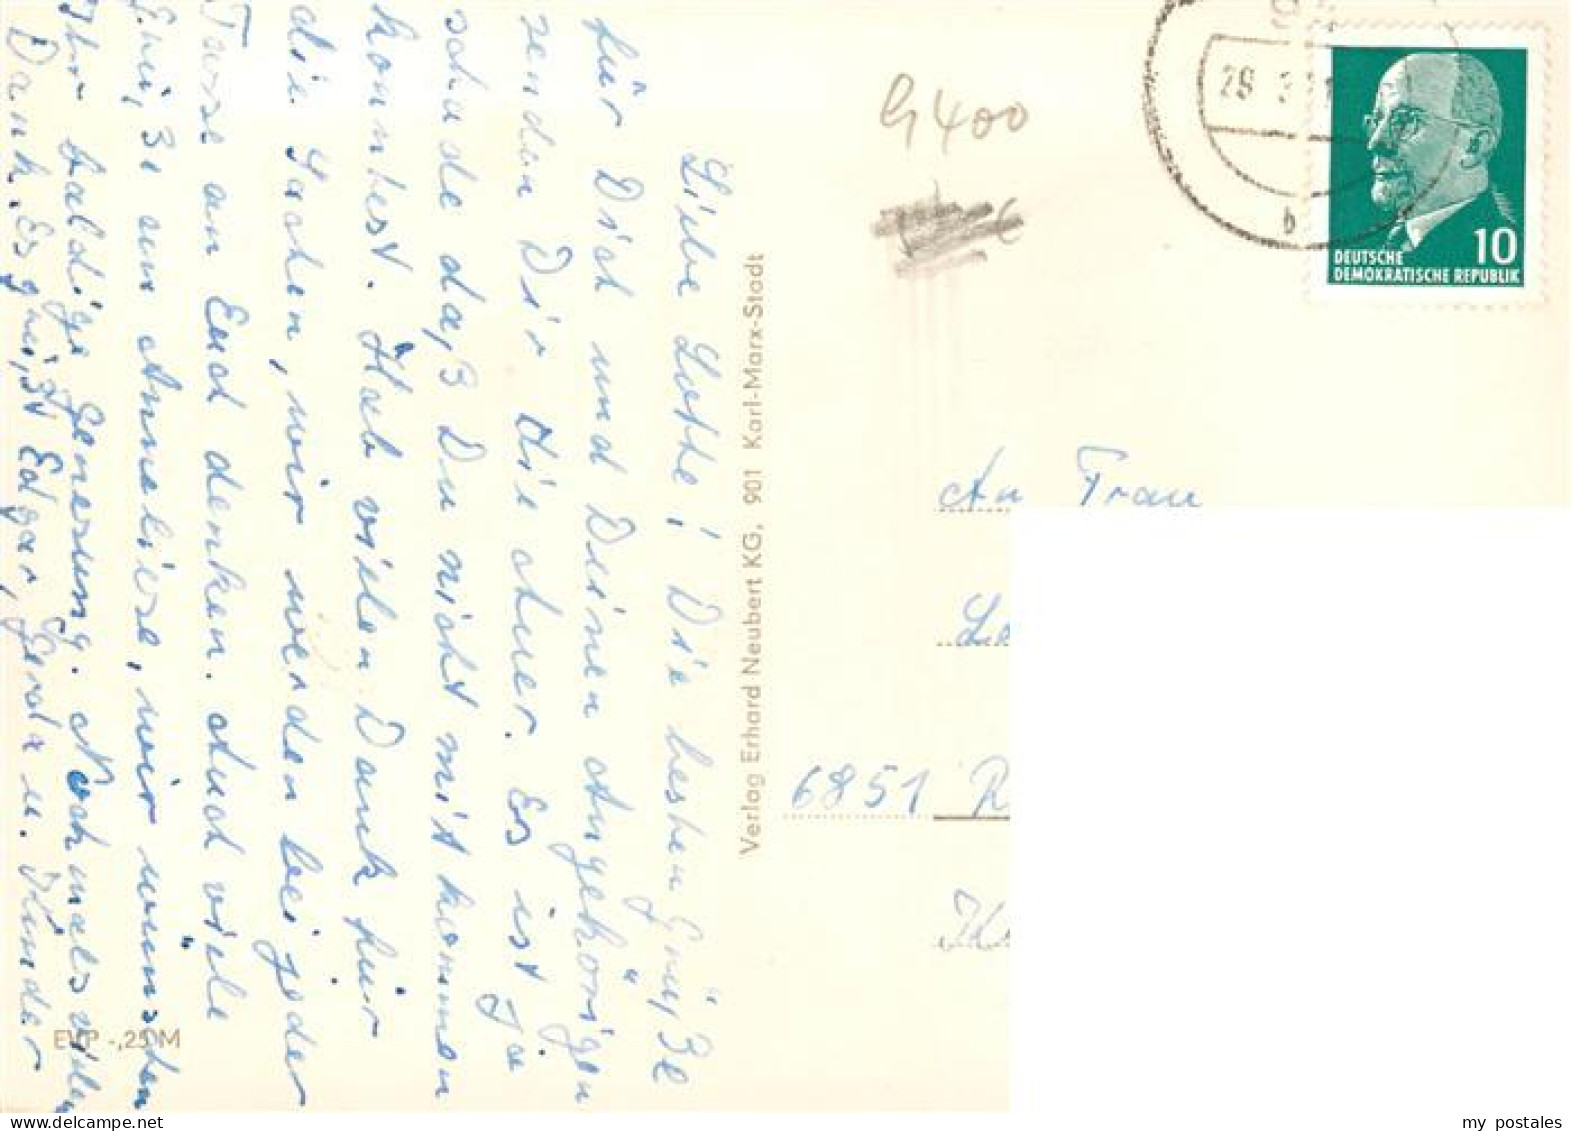 Liebe Lotte! Die besten Grüße
für Dich und Deinen Angehörigen
senden Dir die Auer. Es ist ja
schade daß Du nicht mit kommen
konntest. Hab vielen Dank für
die Sachen, wir werden bei jeder
Tasse an Euch denken. Auch viele
Grüße an Anneliese, wir wünschen
Ihr baldige Genesung. Nochmals vielen
Dank. Es grüßt Edgar, Gerda u. Kinder
EVP -,25 M
Verlag Erhard Neubert KG, 901 Karl-Marx-Stadt
G 400
29
b
10
DEUTSCHE
DEMOKRATISCHE REPUBLIK
An Frau
Le
6851 R
my postales